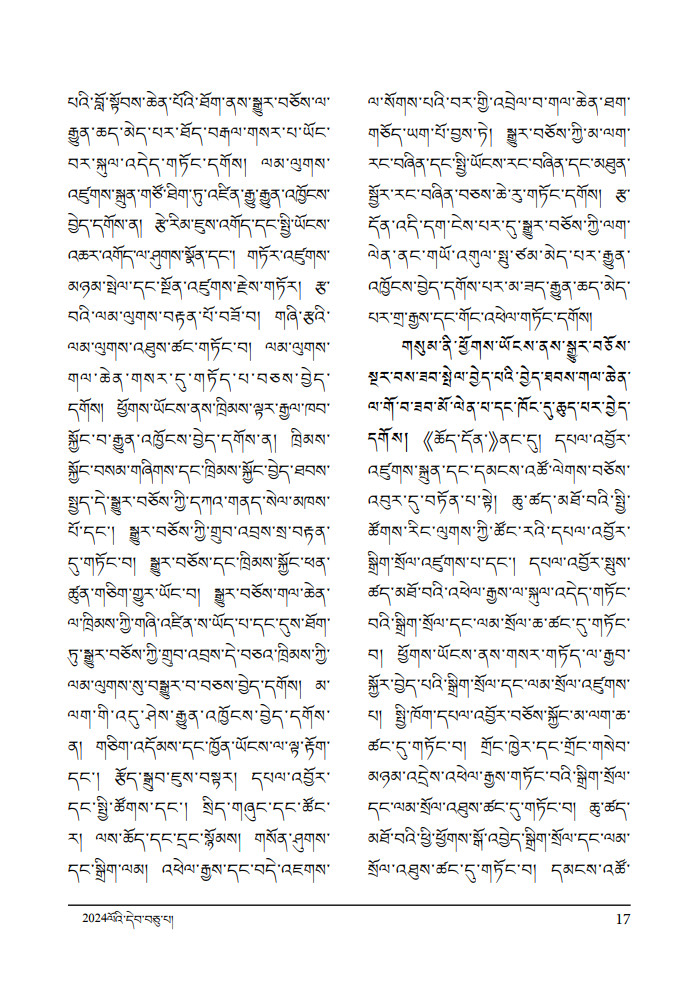 པའི་བློ་སྟོབས་ཆེན་པོའི་ཐོག་ནས་སྒྱུར་བཅོས་ལ་
རྒྱུན་ཆད་མེད་པར་ཐོད་བརྒལ་གསར་པ་ཡོང་
བར་སྐུལ་འདེད་གཏོང་དགོས། ལམ་ལུགས་
འཛུགས་སྐྲུན་གཙོ་ཐིག་ཏུ་འཛིན་རྒྱུ་རྒྱུན་འཁྱོངས་
བྱེད་དགོས་ན། རྩེ་རིམ་ཇུས་འགོད་དང་སྤྱི་ཡོངས་
འཆར་འགོད་ལ་ཤུགས་སྣོན་དང་། གཏོར་འཛུགས་
མཉམ་སྤེལ་དང་སྔོན་འཛུགས་རྗེས་གཏོར། རྩ་
བའི་ལམ་ལུགས་བརྟན་པོ་བཟོ་བ། གཞི་རྩའི་
ལམ་ལུགས་འཐུས་ཚང་གཏོང་བ། ལམ་ལུགས་
གལ་ཆེན་གསར་དུ་གཏོད་པ་བཅས་བྱེད་
དགོས། ཕྱོགས་ཡོངས་ནས་ཁྲིམས་ལྟར་རྒྱལ་ཁབ་
སྐྱོང་བ་རྒྱུན་འཁྱོངས་བྱེད་དགོས་ན། ཁྲིམས་
སྐྱོང་བསམ་གཞིགས་དང་ཁྲིམས་སྐྱོང་བྱེད་ཐབས་
སྤྱད་དེ་སྒྱུར་བཅོས་ཀྱི་དཀའ་གནད་སེལ་མཁས་
པོ་དང་། སྒྱུར་བཅོས་ཀྱི་གྲུབ་འབྲས་སྲ་བརྟན་
དུ་གཏོང་བ། སྒྱུར་བཅོས་དང་ཁྲིམས་སྐྱོང་ཕན་
ཚུན་གཅིག་གྱུར་ཡོང་བ། སྒྱུར་བཅོས་གལ་ཆེན་
ལ་ཁྲིམས་ཀྱི་གཞི་འཛིན་ས་ཡོད་པ་དང་དུས་ཐོག་
ཏུ་སྒྱུར་བཅོས་ཀྱི་གྲུབ་འབྲས་དེ་བཅའ་ཁྲིམས་ཀྱི་
ལམ་ལུགས་སུ་བསྒྱུར་བ་བཅས་བྱེད་དགོས། མ་
ལག་གི་འདུ་ཤེས་རྒྱུན་འཁྱོངས་བྱེད་དགོས་
ན། གཅིག་འདོམས་དང་ཁྱོན་ཡོངས་ལ་ལྟ་རྟོག་
དང་། རྩོད་སྒྲུབ་ཇུས་བསྟར། དཔལ་འབྱོར་
དང་སྤྱི་ཚོགས་དང་། སྲིད་གཞུང་དང་ཚོང་
ར། ལས་ཆོད་དང་དྲང་སྙོམས། གསོན་ཤུགས་
དང་སྒྲིག་ལམ། འཕེལ་རྒྱས་དང་བདེ་འཇགས་
ལ་སོགས་པའི་བར་གྱི་འབྲེལ་བ་གལ་ཆེན་ཐག་
གཅོད་ཡག་པོ་བྱས་ཏེ། སྒྱུར་བཅོས་ཀྱི་མ་ལག་
རང་བཞིན་དང་སྤྱི་ཡོངས་རང་བཞིན་དང་མཐུན་
སྦྱོར་རང་བཞིན་བཅས་ཆེ་རུ་གཏོང་དགོས། རྩ་
དོན་འདི་དག་ངེས་པར་དུ་སྒྱུར་བཅོས་ཀྱི་ལག་
ལེན་ནང་གཡོ་འགུལ་སྤུ་ཙམ་མེད་པར་རྒྱུན་
འཁྱོངས་བྱེད་དགོས་པར་མ་ཟད་རྒྱུན་ཆད་མེད་
པར་གྲ་རྒྱས་དང་གོང་འཕེལ་གཏོང་དགོས།
གསུམ་ནི་ཕྱོགས་ཡོངས་ནས་སྒྱུར་བཅོས་
སྔར་བས་ཟབ་སྤེལ་བྱེད་པའི་བྱེད་ཐབས་གལ་ཆེན་
ལ་གོ་བ་ཟབ་མོ་ལེན་པ་དང་ཁོང་དུ་ཆུད་པར་བྱེད་
དགོས། 《ཆོད་དོན་》ནང་དུ། དཔལ་འབྱོར་
འཛུགས་སྐྲུན་དང་དམངས་འཚོ་ལེགས་བཅོས་
འབུར་དུ་བཏོན་པ་སྟེ། ཆུ་ཚད་མཐོ་བའི་སྤྱི་
ཚོགས་རིང་ལུགས་ཀྱི་ཚོང་རའི་དཔལ་འབྱོར་
སྒྲིག་སྲོལ་འཛུགས་པ་དང་། དཔལ་འབྱོར་སྤུས་
ཚད་མཐོ་བའི་འཕེལ་རྒྱས་ལ་སྐུལ་འདེད་གཏོང་
བའི་སྒྲིག་སྲོལ་དང་ལམ་སྲོལ་ཆ་ཚང་དུ་གཏོང་
བ། ཕྱོགས་ཡོངས་ནས་གསར་གཏོད་ལ་རྒྱབ་
སྐྱོར་བྱེད་པའི་སྒྲིག་སྲོལ་དང་ལམ་སྲོལ་འཛུགས་
པ། སྤྱི་ཁོག་དཔལ་འབྱོར་བཅོས་སྐྱོང་མ་ལག་ཆ་
ཚང་དུ་གཏོང་བ། གྲོང་ཁྱེར་དང་གྲོང་གསེབ་
མཉམ་འདྲེས་འཕེལ་རྒྱས་གཏོང་བའི་སྒྲིག་སྲོལ་
དང་ལམ་སྲོལ་འཐུས་ཚང་དུ་གཏོང་བ། ཆུ་ཚད་
མཐོ་བའི་ཕྱི་ཕྱོགས་སྒོ་འབྱེད་སྒྲིག་སྲོལ་དང་ལམ་
སྲོལ་འཐུས་ཚང་དུ་གཏོང་བ། དམངས་འཚོ་
2024ལོའི་དེབ་བཅུ་པ། 17